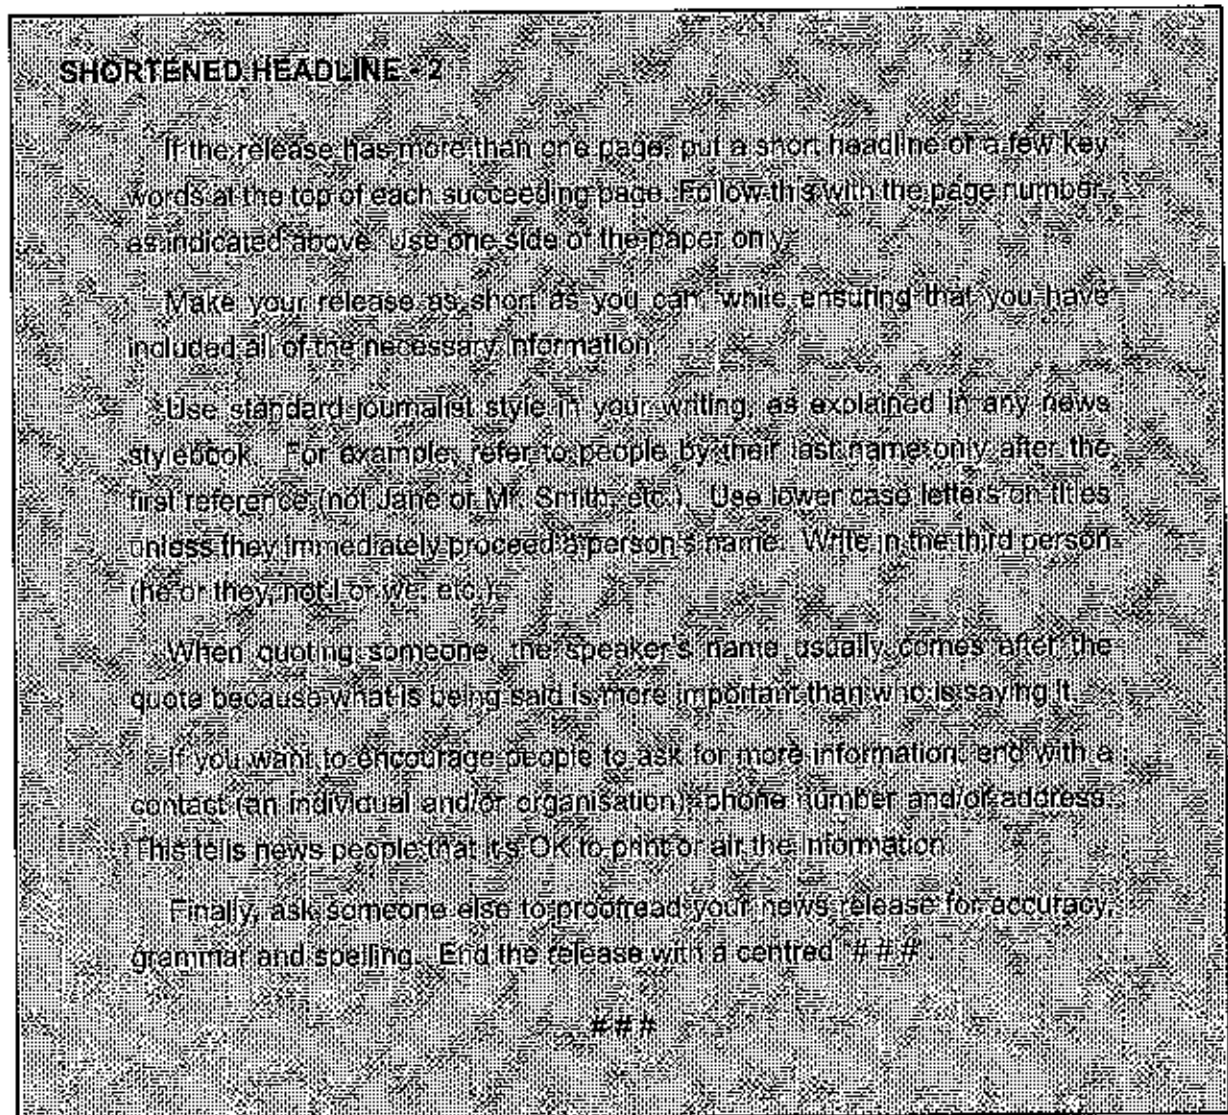 SHORTENED HEADLINE - 2
If the release has more than one page, put a short headline of a few key
words at the top of each succeeding page. Follow this with the page number
as indicated above. Use one side of the paper only.
Make your release as short as you can, while ensuring that you have
included all of the necessary information.
Use standard journalist style in your writing, as explained in any news
stylebook. For example, refer to people by their last name only after the
first reference (not Jane or Mr. Smith, etc.). Use lower case letters on titles
unless they immediately proceed a person's name. Write in the third person
(he or they, not I or we, etc.).
When quoting someone, the speaker's name usually comes after the
quote because what is being said is more important than who is saying it.
If you want to encourage people to ask for more information, end with a
contact (an individual and/or organisation), phone number and/or address.
This tells news people that it's OK to print or air the information.
Finally, ask someone else to proofread your news release for accuracy,
grammar and spelling. End the release with a centred "# # #".
# # #